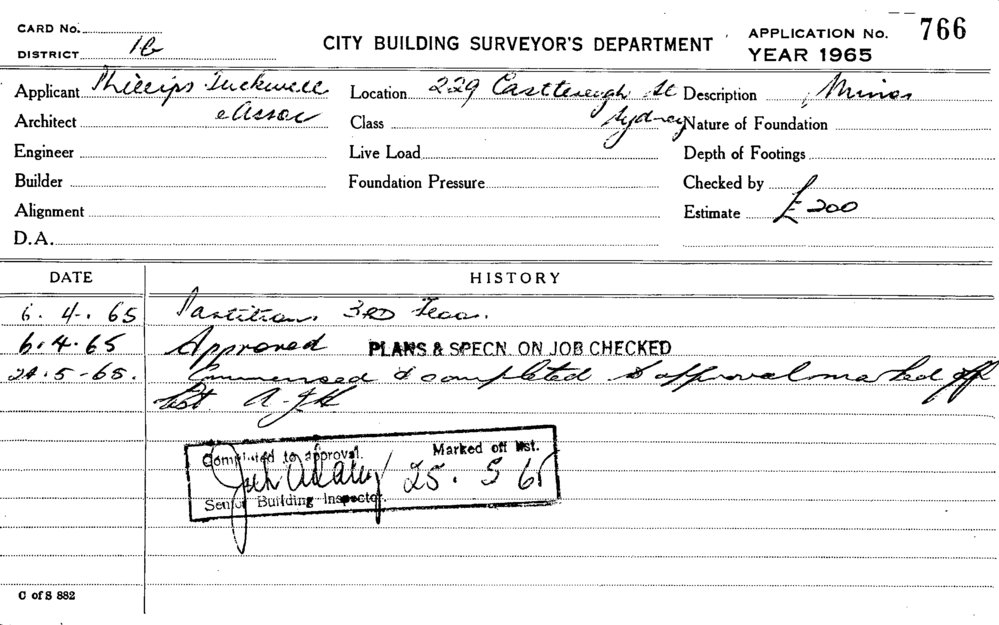 CARD No.
766
APPLICATION No.
DISTRICT 1b
CITY BUILDING SURVEYOR'S DEPARTMENT
YEAR 1965
Applicant Phillips Tuckwell
Location 229 Castlereagh St
Description Minor
Architect & Assoc
Class Sydney
Nature of Foundation
Engineer
Live Load
Depth of Footings
Builder
Foundation Pressure
Checked by
Alignment
Estimate £200
D.A.
DATE HISTORY
6.4.65 Partitions 3RD Floor.
6.4.65 Approved PLANS & SPECN. ON JOB CHECKED
24.5-65. Commenced & completed to approval marked off
list A.J.H
Completed to approval. Marked off list.
25.5 65
Senior Building Inspector.
C of S 882